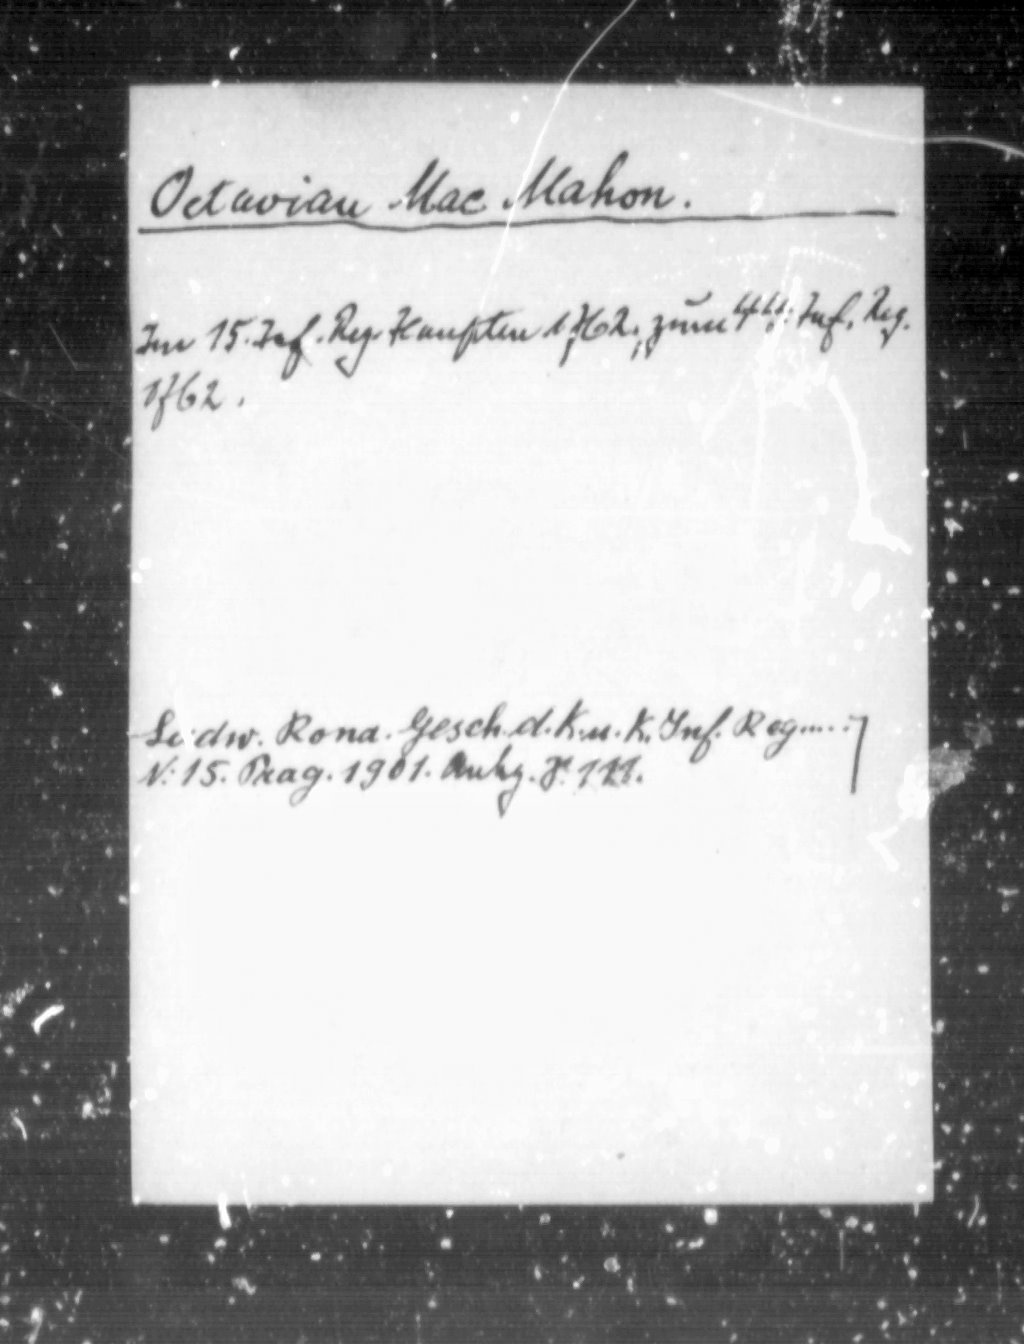 Octavian Mac Mahon.
Im 15. Inf. Reg. Hauptm 1762. zum 44. Inf. Reg.
1762.
Ludw. Rona. Gesch. d. K. u. K. Inf. Reg.
N: 15. Prag. 1901. Anhg.